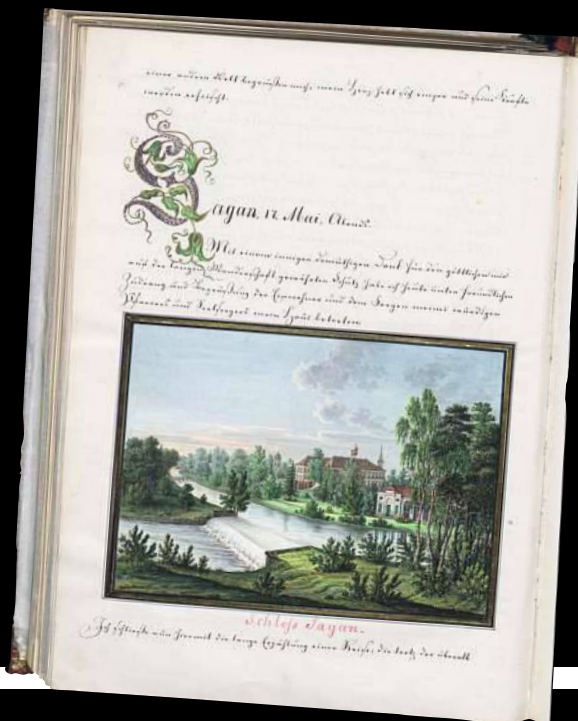 einer andern Welt begrüßten mich, mein Herz hebt sich empor und seine Kräfte
werden erfrischt.
Sagan, 12 Mai, Abends.
Mit einem innigen demüthigen Dank für den göttlichen mir
auf der langen Wanderschaft gewährten Schutz habe ich heute unter freundlichem
Zudrang und Begrüßung der Einwohner und dem Segen meines würdigen
Pfarrers und Seelsorgers mein Haus betreten.
Schloss Sagan.
Ich schließe nun hiermit die lange Erzählung einer Reise, die trotz der überall